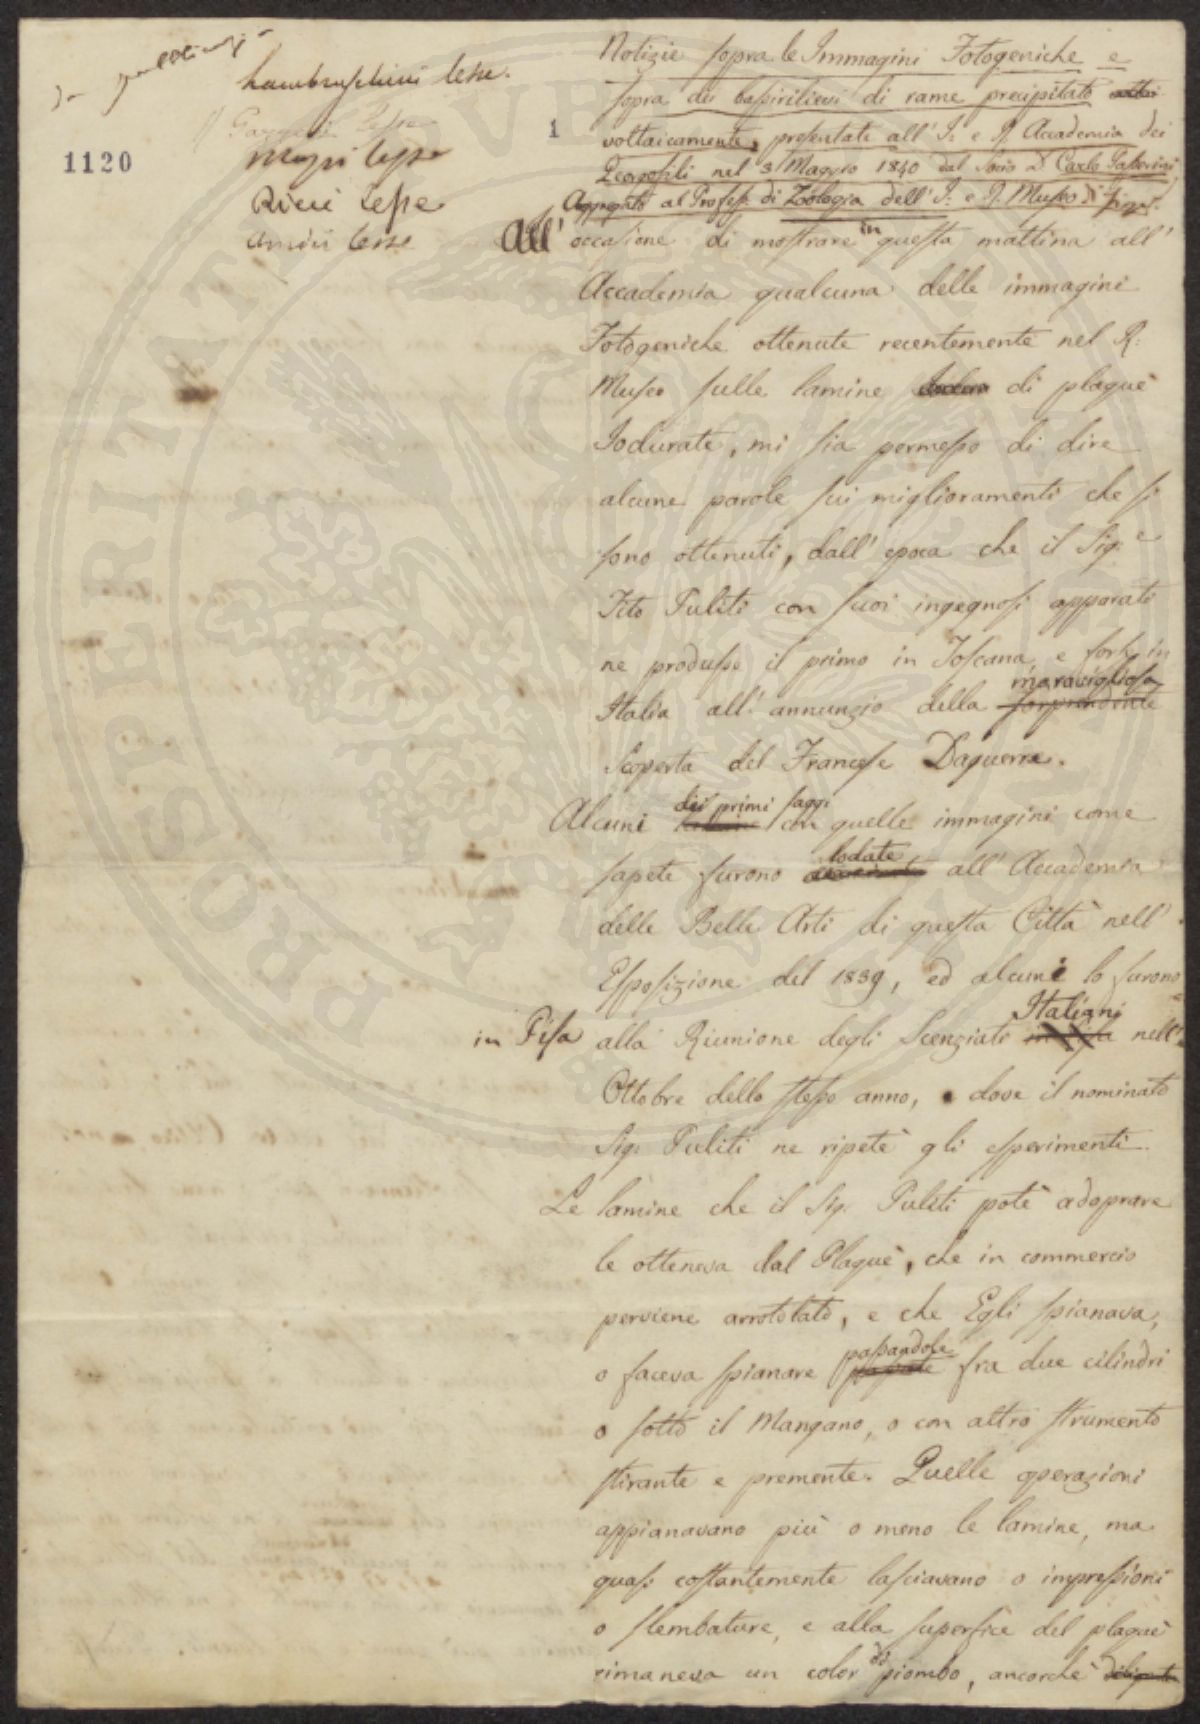 Lambruschini lesse.
Gazzeri lesse
1120
Ricci lesse
Amici lesse
1
Notizie sopra le Immagini Fotogeniche e
sopra dei bassirilievi di rame precipitato
voltaicamente, presentate all' I: e R. Accademia dei
Georgofili nel 3 Maggio 1840 dal Socio D. Carlo Passerini
Aggregato al Profess. di Zoologia dell' I: e R. Museo di Fis.
All' occasione di mostrare in questa mattina all'
Accademia qualcuna delle immagini
Fotogeniche ottenute recentemente nel R.
Museo sulle lamine di plaquè
Iodurate, mi sia permesso di dire
alcune parole sui miglioramenti che si
sono ottenuti, dall' epoca che il Sig.e
Tito Puliti con suoi ingegnosi apparati
ne produsse il primo in Toscana, e forse in
maravigliosa
Italia all' annunzio della sorprendente
Scoperta del Francese Daguerre.
dei primi saggi
Alcuni con quelle immagini come
lodate
sapete furono all' Accademia
delle Belle Arti di questa Città nell'
Esposizione del 1839, ed alcuni lo furono
Italiani
in Pisa alla Riunione degli Scenziati in Pisa nell'
Ottobre dello stesso anno, dove il nominato
Sig. Puliti ne ripetè gli esperimenti.
Le lamine che il Sig. Puliti potè adoprare
le otteneva dal Plaquè, che in commercio
perviene arrotolato, e che Egli spianava,
passandole
o faceva spianare passate fra due cilindri
o sotto il Mangano, o con altro strumento
stirante e premente. Quelle operazioni
appianavano più o meno le lamine, ma
quasi costantemente lasciavano o impressioni
o slembature, e alla superfice del plaquè
di
rimaneva un color piombo, ancorchè